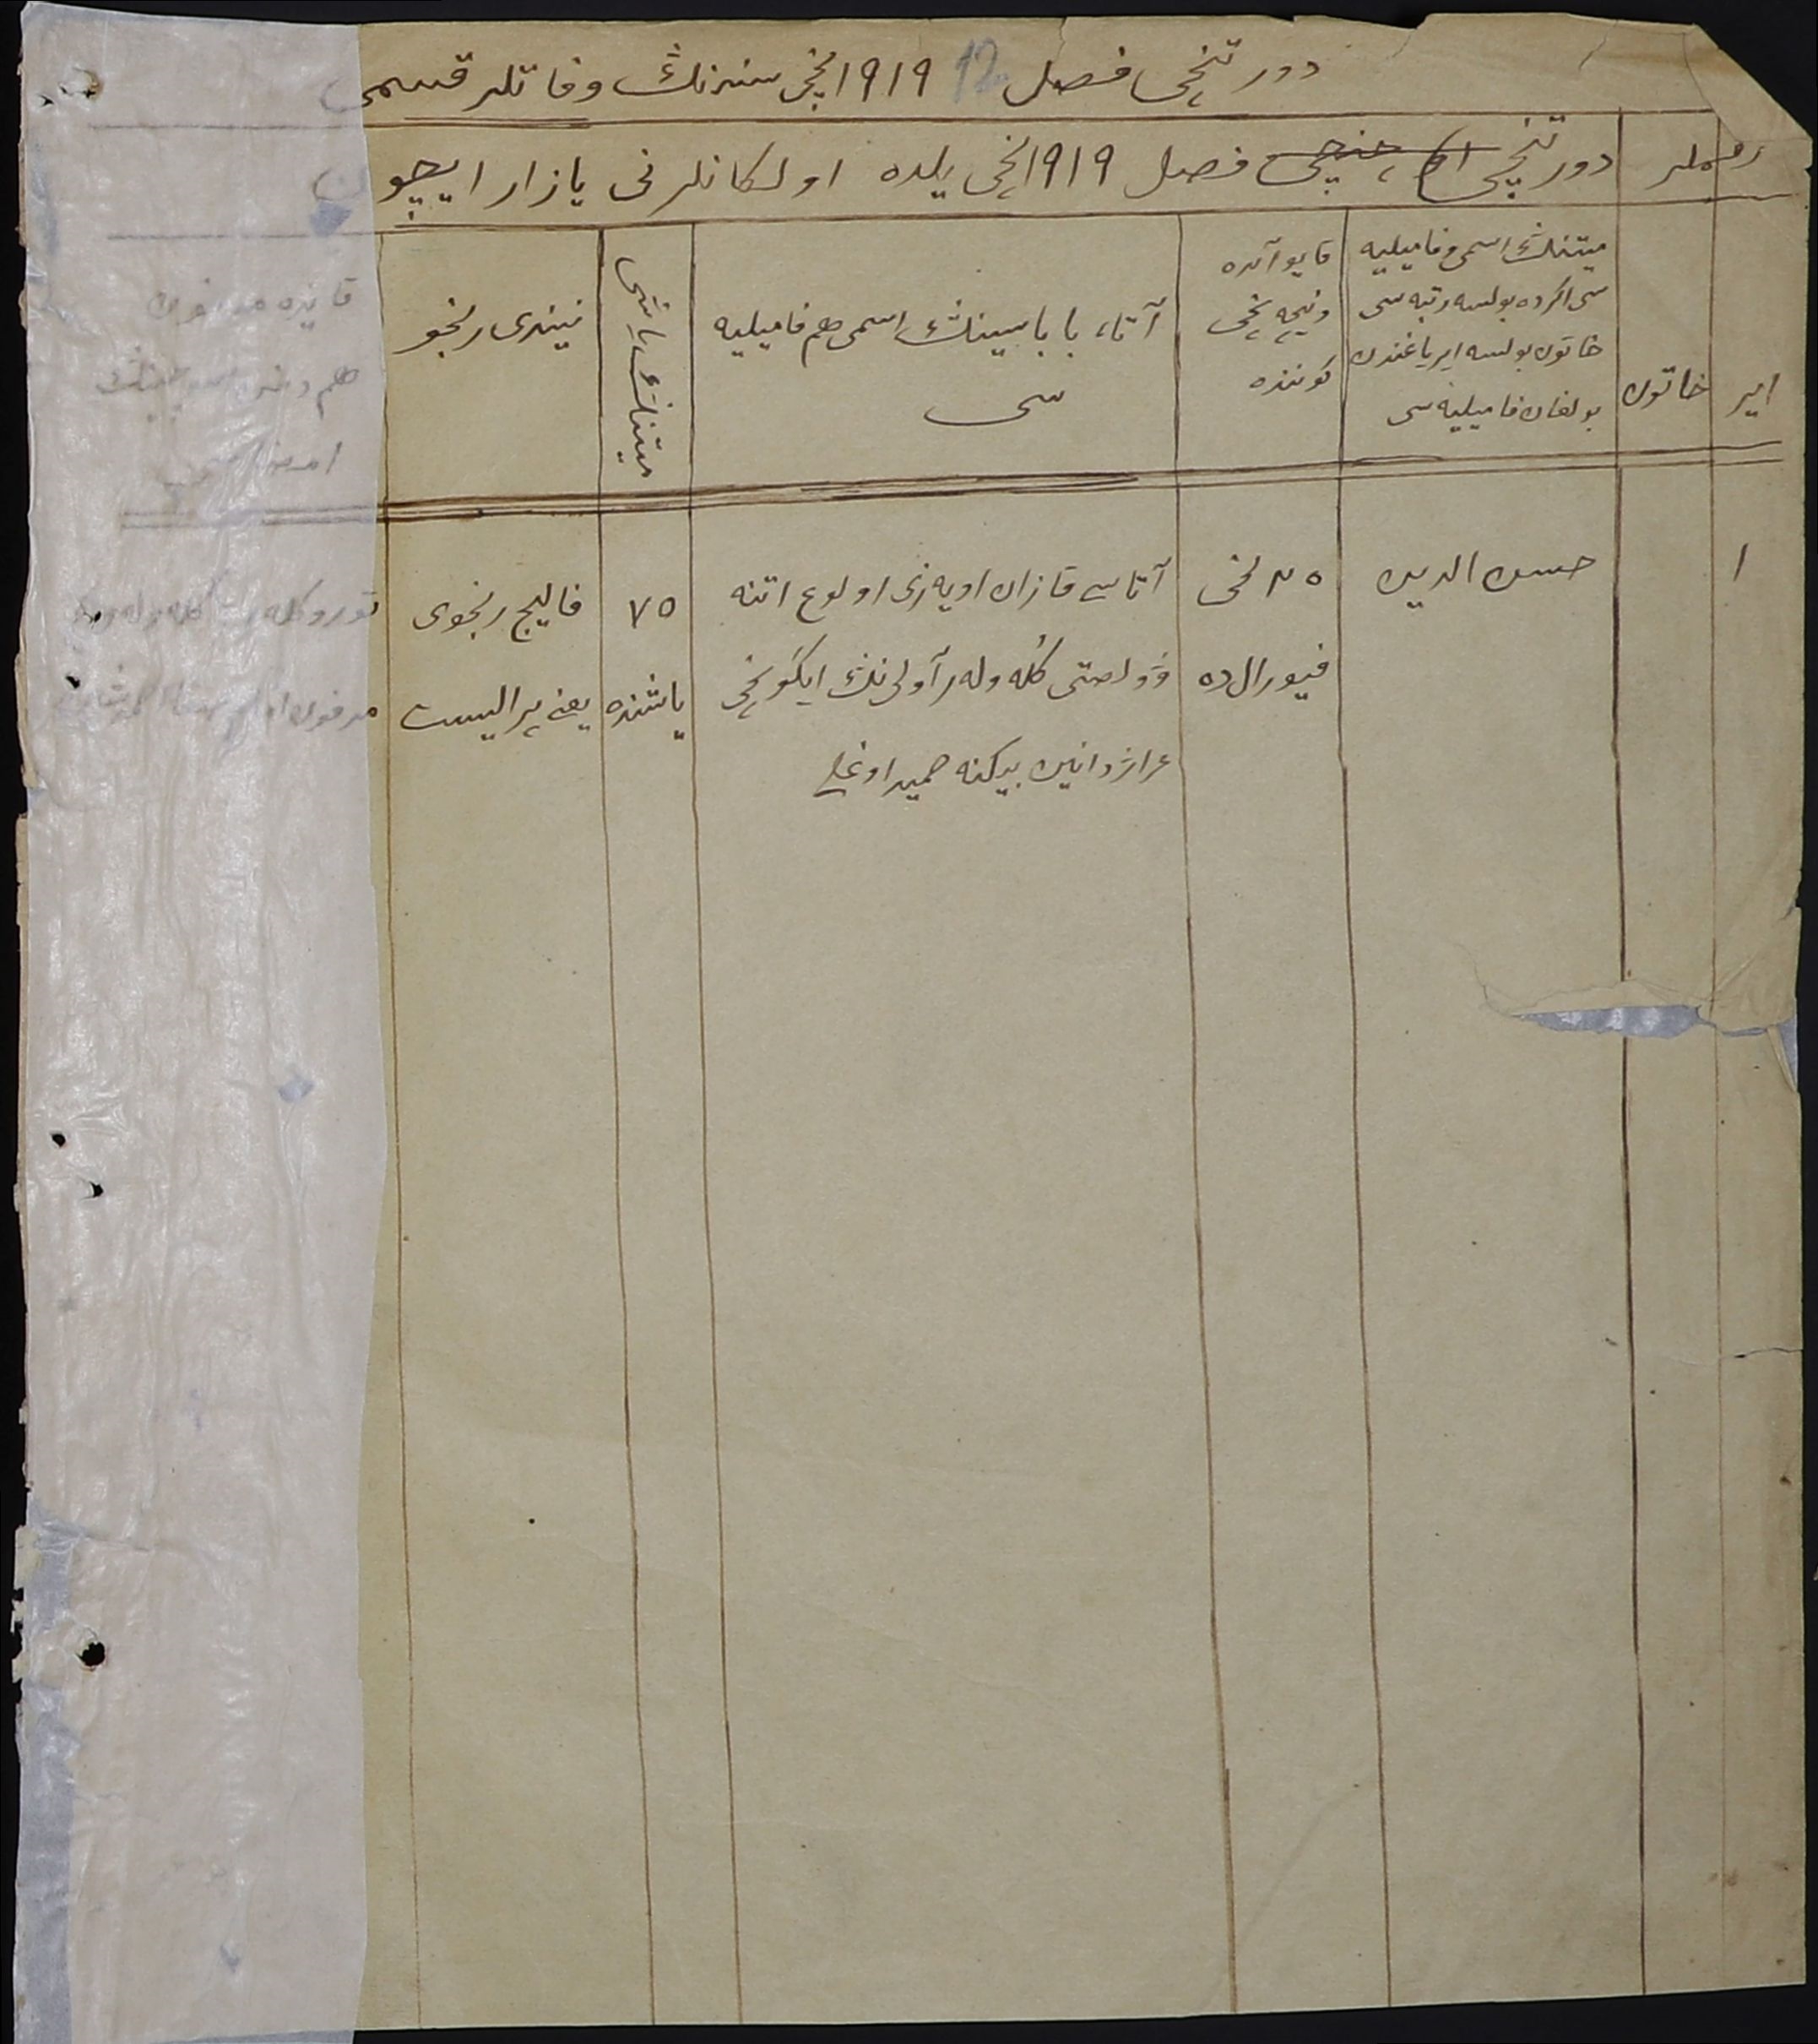 دورتنچی فصل 12 ١٩١٩نچی سنه‌نڭ وفاتلر قسمی
رقملر
دورتنچی فصل ١٩١٩نچی یلده اولكانلرنی یازار ایچون
ایر
خاتون
میتنڭ اسمی وفامیلیه
سی اگرده بولسه رتبه سی
خاتون بولسه ایر یاغندن
بولغان فامیلیه سی
قایو آیده
ونیچه نچی
كوننده
آتا، باباسینڭ اسمی هم فامیلیه
سی
میتنڭ یاشی
نیندی رنجو
قایده مدفون
هم
١
حسن الدین
٢٥ نچی
فیورال ده
آتاسی قازان اویه‌زی اولوغ اتنه
وولصتی كله وله‌ر آولی‌نڭ ایكونچی
عراژدانین بیكنه حمید اوغلی
٧٥
یاشنده
فالیج رنجوی
یعنی پرالیست